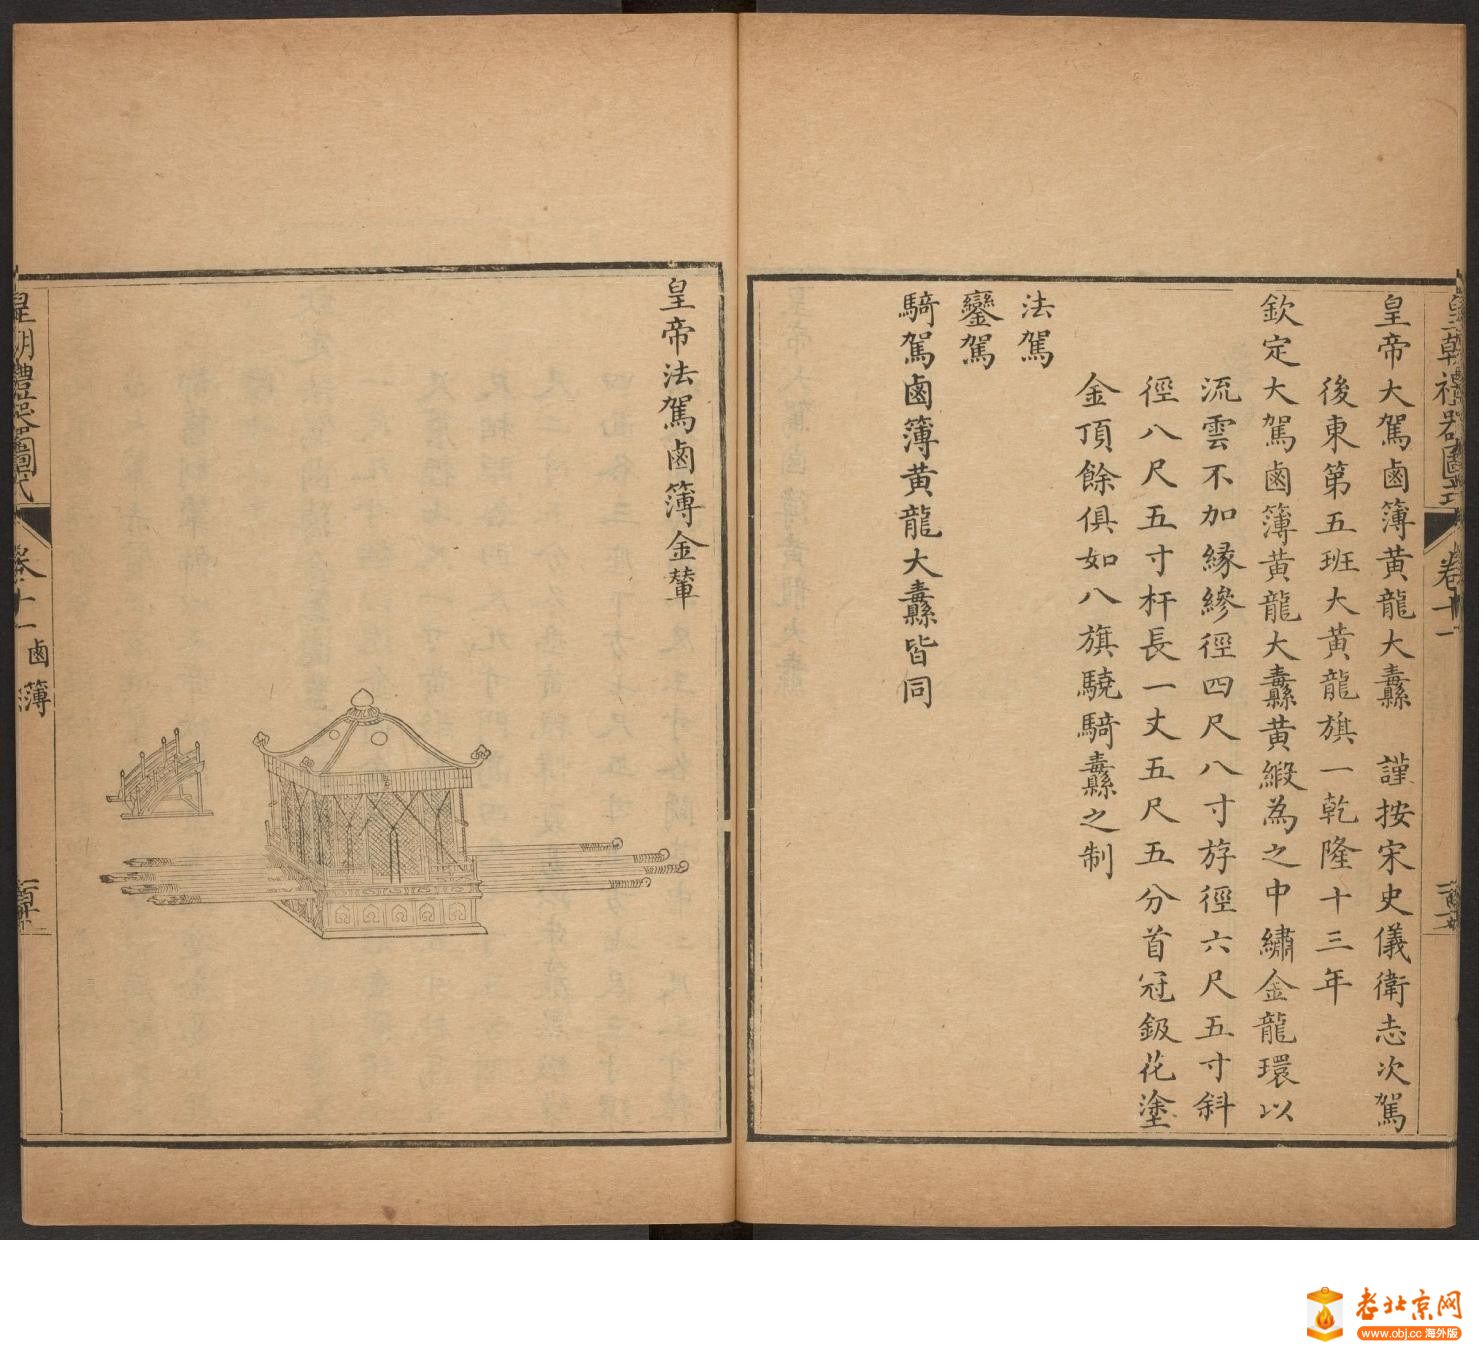 皇帝大駕鹵簿黃龍大纛　謹按宋史儀衛志次駕
後東第五班大黃龍旗一乾隆十三年
欽定大駕鹵簿黃龍大纛黃緞為之中繡金龍環以
流雲不加緣縿徑四尺八寸斿徑六尺五寸斜
徑八尺五寸杆長一丈五尺五分首冠鈒花塗
金頂餘俱如八旗驍騎纛之制
法駕
鑾駕
騎駕鹵簿黃龍大纛皆同
皇帝法駕鹵簿金輦
皇朝禮器圖式
卷十一
鹵簿
老北京网
www.obj.cc 海外版